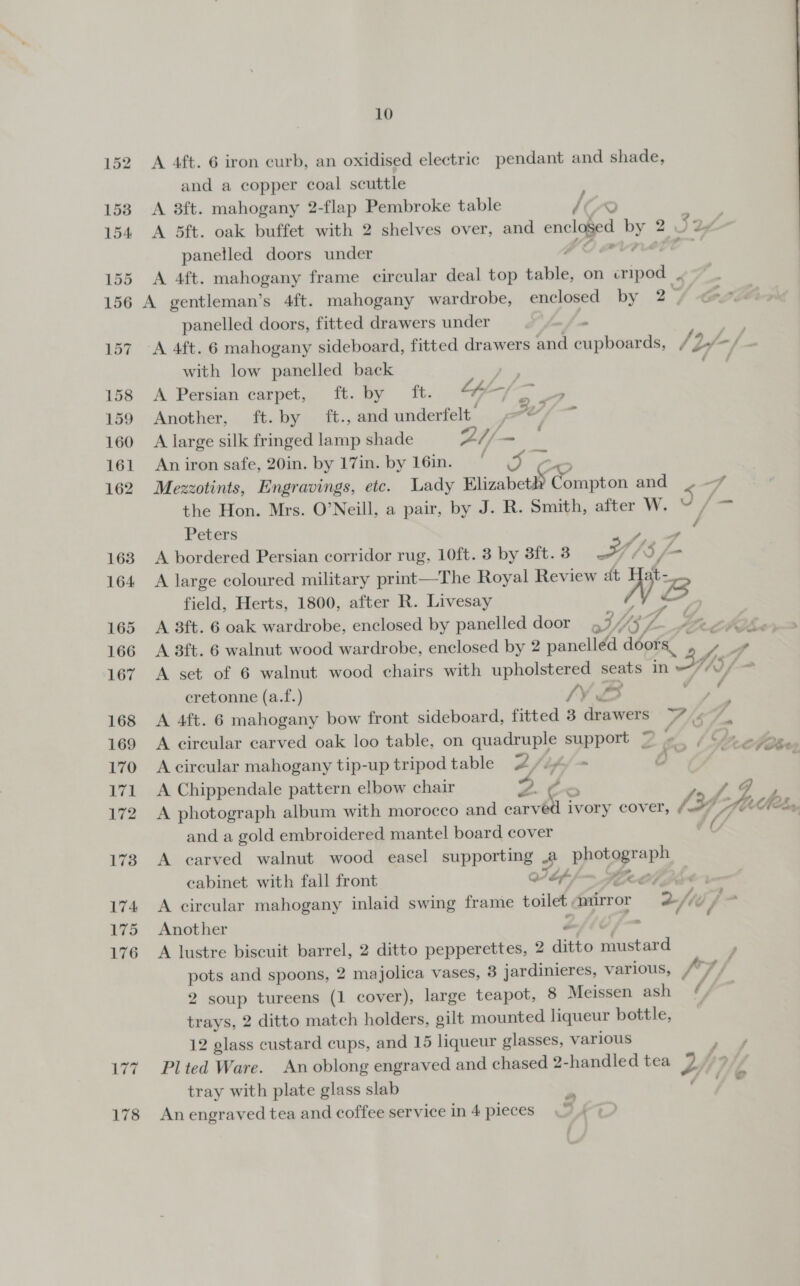 10
152 A 4ft. 6 iron curb, an oxidised electric pendant and shade,
and a copper coal scuttle
153 A 3ft. mahogany 2-flap Pembroke table
154 A 5ft. oak buffet with 2 shelves over, and enclosed by 2
panelled doors under
155 A 4ft. mahogany frame circular deal top table, on tripod
156 A gentleman's 4ft. mahogany wardrobe, enclosed by 2
panelled doors, fitted drawers under
157 A 4ft. 6 mahogany sideboard, fitted drawers and cupboards,
with low panelled back
158 A Persian carpet, ft. by ft.
159 Another, ft. by ft., and underfelt
160 A large silk fringed lamp shade
161 An iron safe, 20in. by 17in. by 16in.
162 Mezzotints, Engravings, etc. Lady Elizabeth Compton and
the Hon. Mrs. O'Neill, a pair, by J. R. Smith, after W.
Peters
163 A bordered Persian corridor rug, 10ft. 3 by 3ft. 3
164 A large coloured military print—The Royal Review at Hat-
field, Herts, 1800, after R. Livesay
165 A 3ft. 6 oak wardrobe, enclosed by panelled door
166 A 3ft. 6 walnut wood wardrobe, enclosed by 2 panelled doors
167 A set of 6 walnut wood chairs with upholstered seats in
cretonne (a.f.)
168 A 4ft. 6 mahogany bow front sideboard, fitted 3 drawers
169 A circular carved oak loo table, on quadruple support
170 A circular mahogany tip-up tripod table
171 A Chippendale pattern elbow chair
172 A photograph album with morocco and carved ivory cover,
and a gold embroidered mantel board cover
173 A carved walnut wood easel supporting a photograph
cabinet with fall front
174 A circular mahogany inlaid swing frame toilet mirror
175 Another
176 A lustre biscuit barrel, 2 ditto pepperettes, 2 ditto mustard
pots and spoons, 2 majolica vases, 3 jardinieres, various,
2 soup tureens (1 cover), large teapot, 8 Meissen ash
trays, 2 ditto match holders, gilt mounted liqueur bottle,
12 glass custard cups, and 15 liqueur glasses, various
177 Plted Ware. An oblong engraved and chased 2-handled tea
tray with plate glass slab
178 An engraved tea and coffee service in 4 pieces